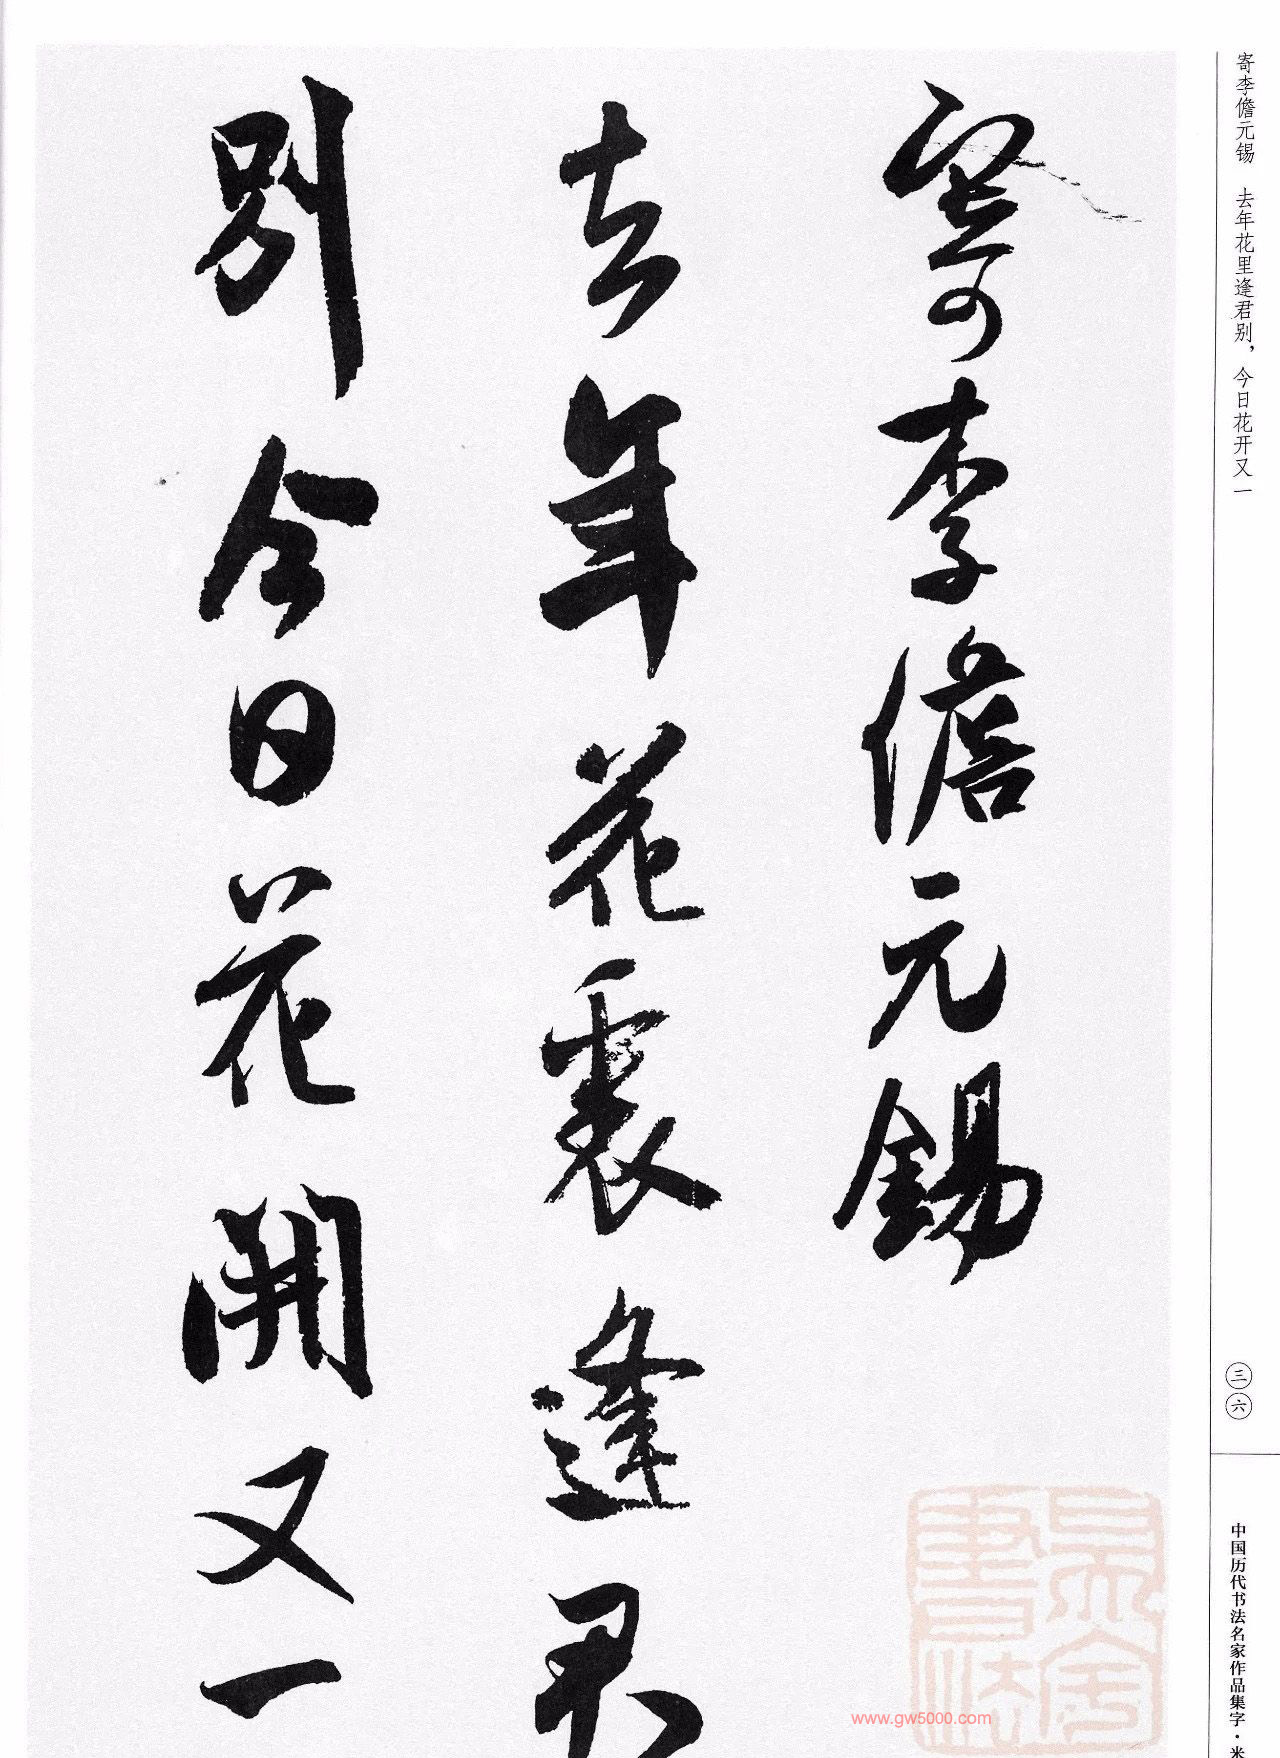 寄李儋元锡　去年花里逢君别，今日花开又一
三六
中国历代书法名家作品集字·米
寄李儋元錫
去年花裏逢君
別今日花開又一
www.gw5000.com